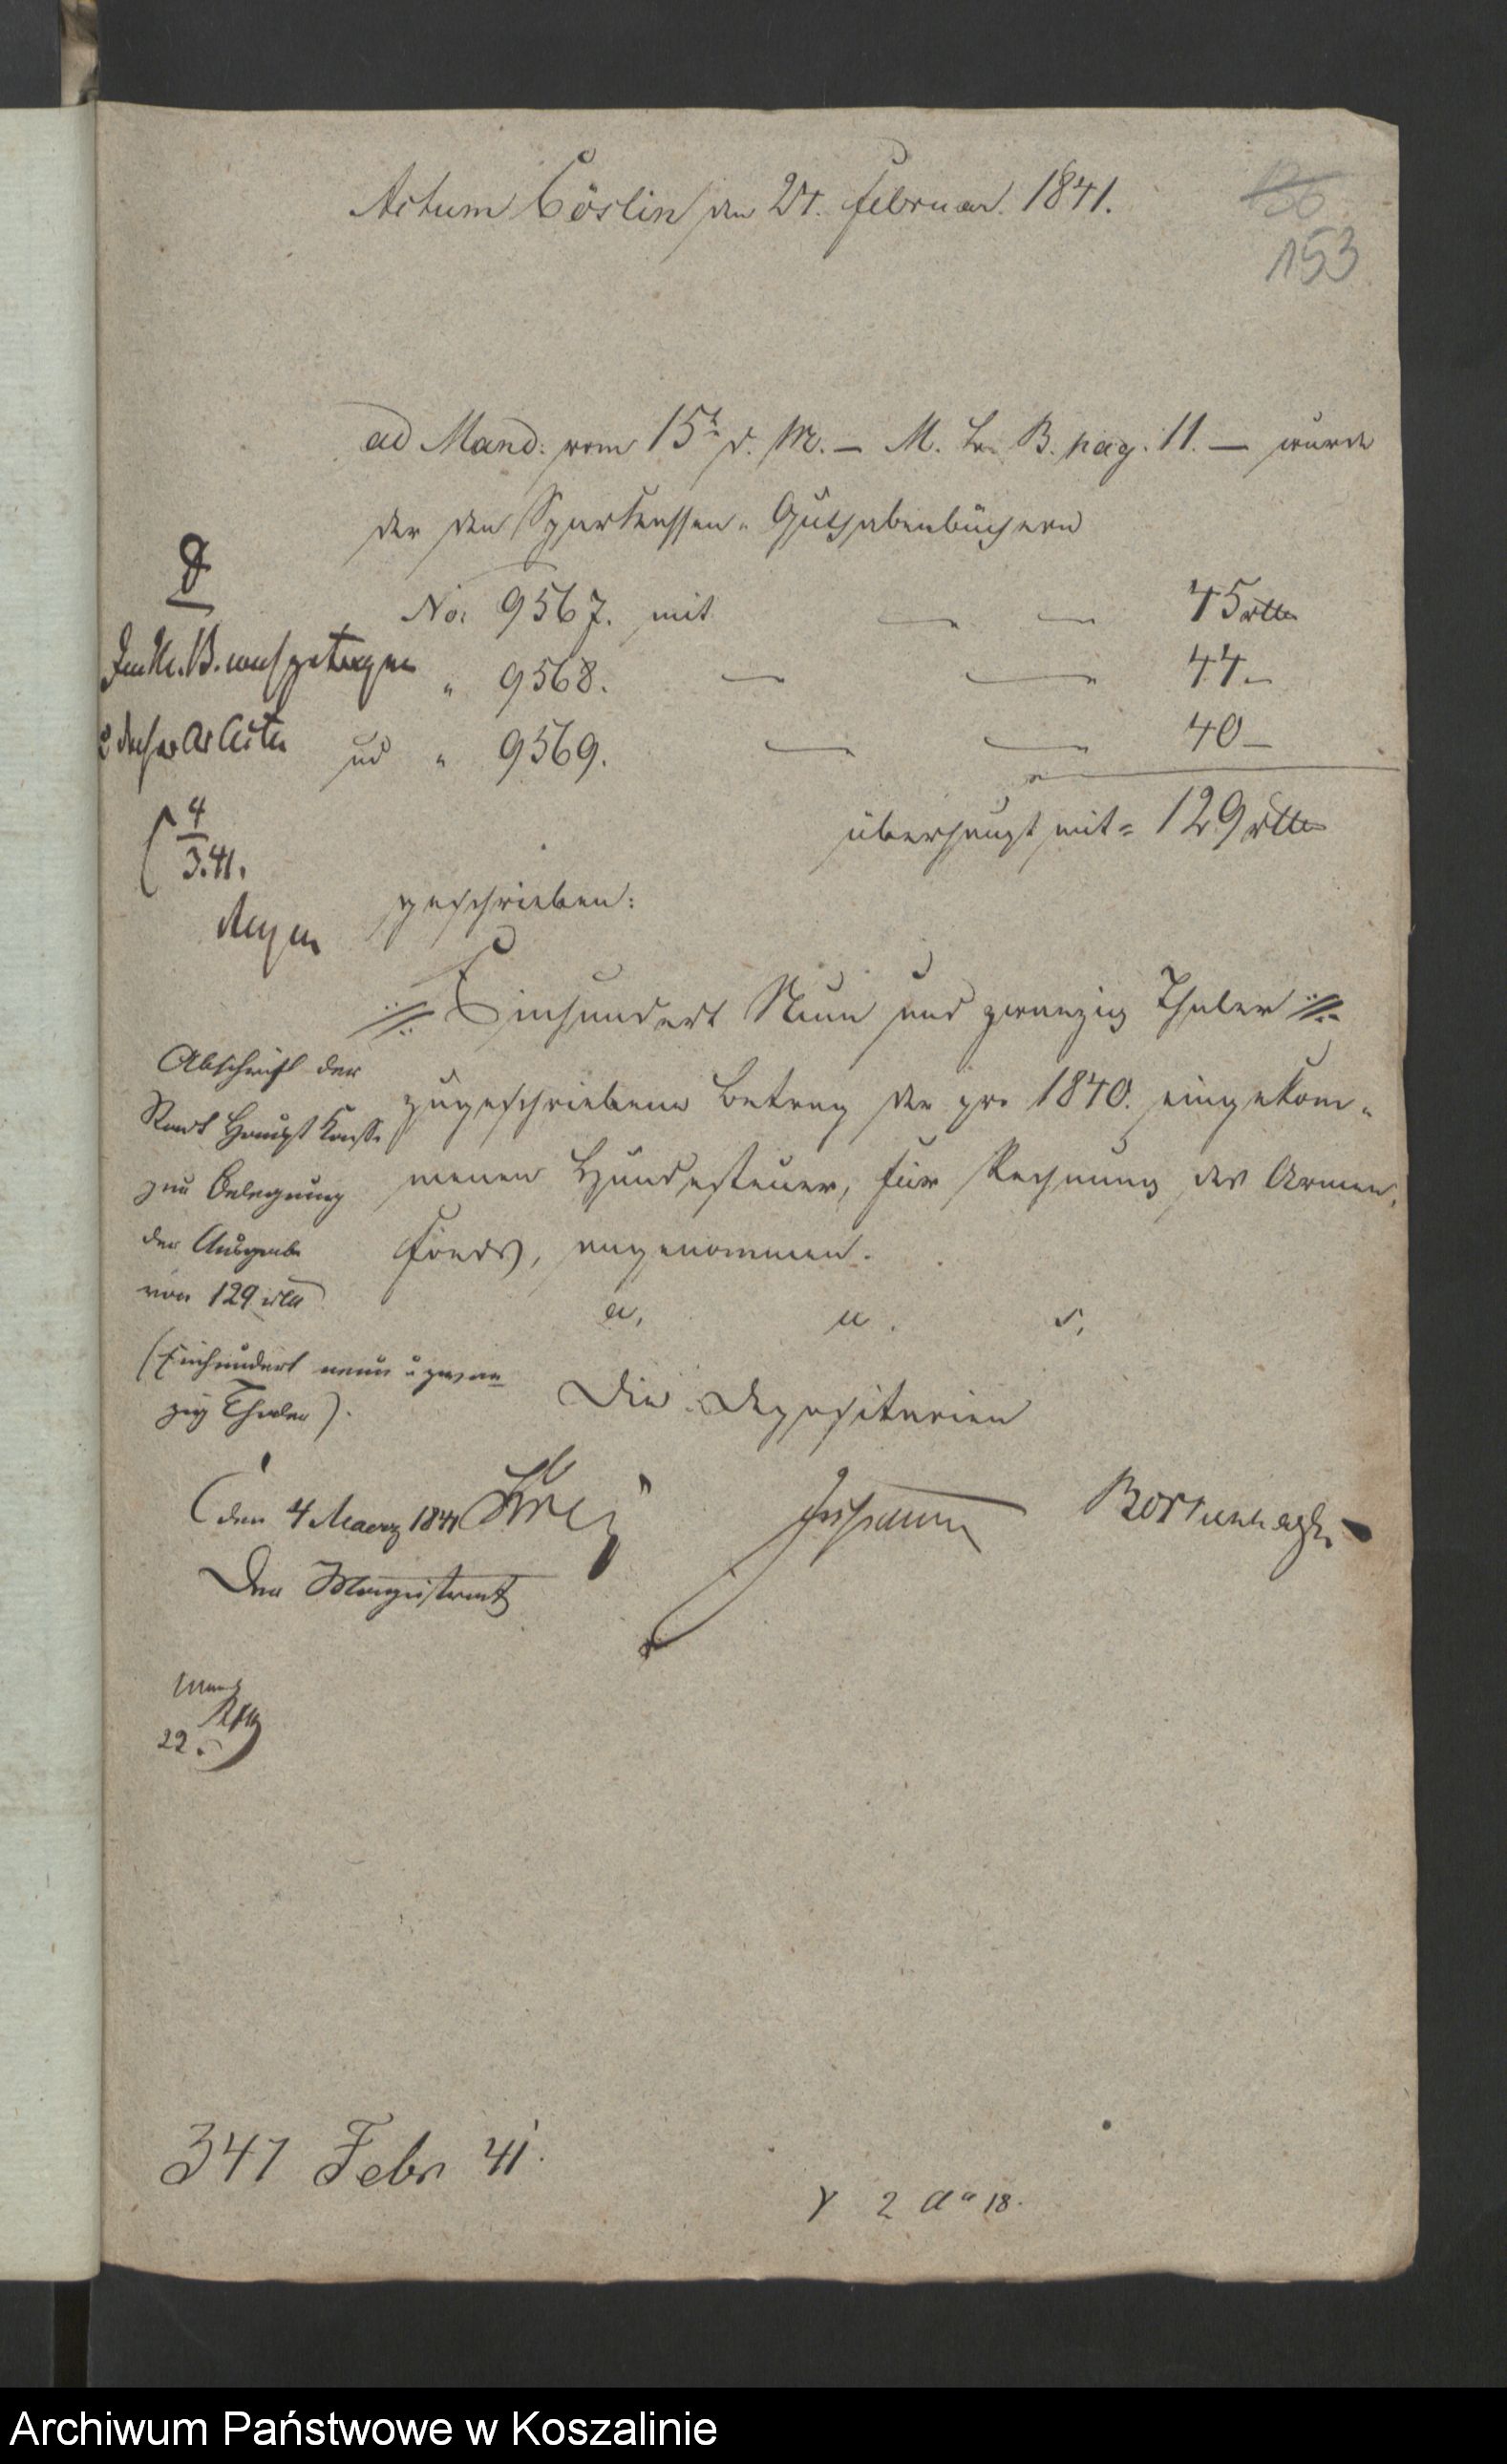 Actum Cöslin den 24. Februar. 1841.
136
153
ad Mand: vom 15t d. M. – M. B. pag. 11. – wurde
der den Sparkassen- Guthabenbüchern
No: 9567. mit — — 45 rtlr
" 9568. — — 44 –
und " 9569. — — 40 –
überhaupt mit = 129 rtlr
geschrieben:
Einhundert Neun und zwanzig Thaler
zugeschriebene Betrag der pro 1840. eingekom-
menen Hundesteuer, für Rechnung des Armen-
Fonds, angenommen.
a. u. s.
Die Depositarien
4
3. 41.
Abschrift der
Stadt Haupt Kasse
zur Belegung
der Ausgabe
von 129 rtlr
(Einhundert neun u zwan
zig Thaler).
den 4 Maerz 1841
Der Magistrat
22
347 Febr 41.
2 18.
Archiwum Państwowe w Koszalinie